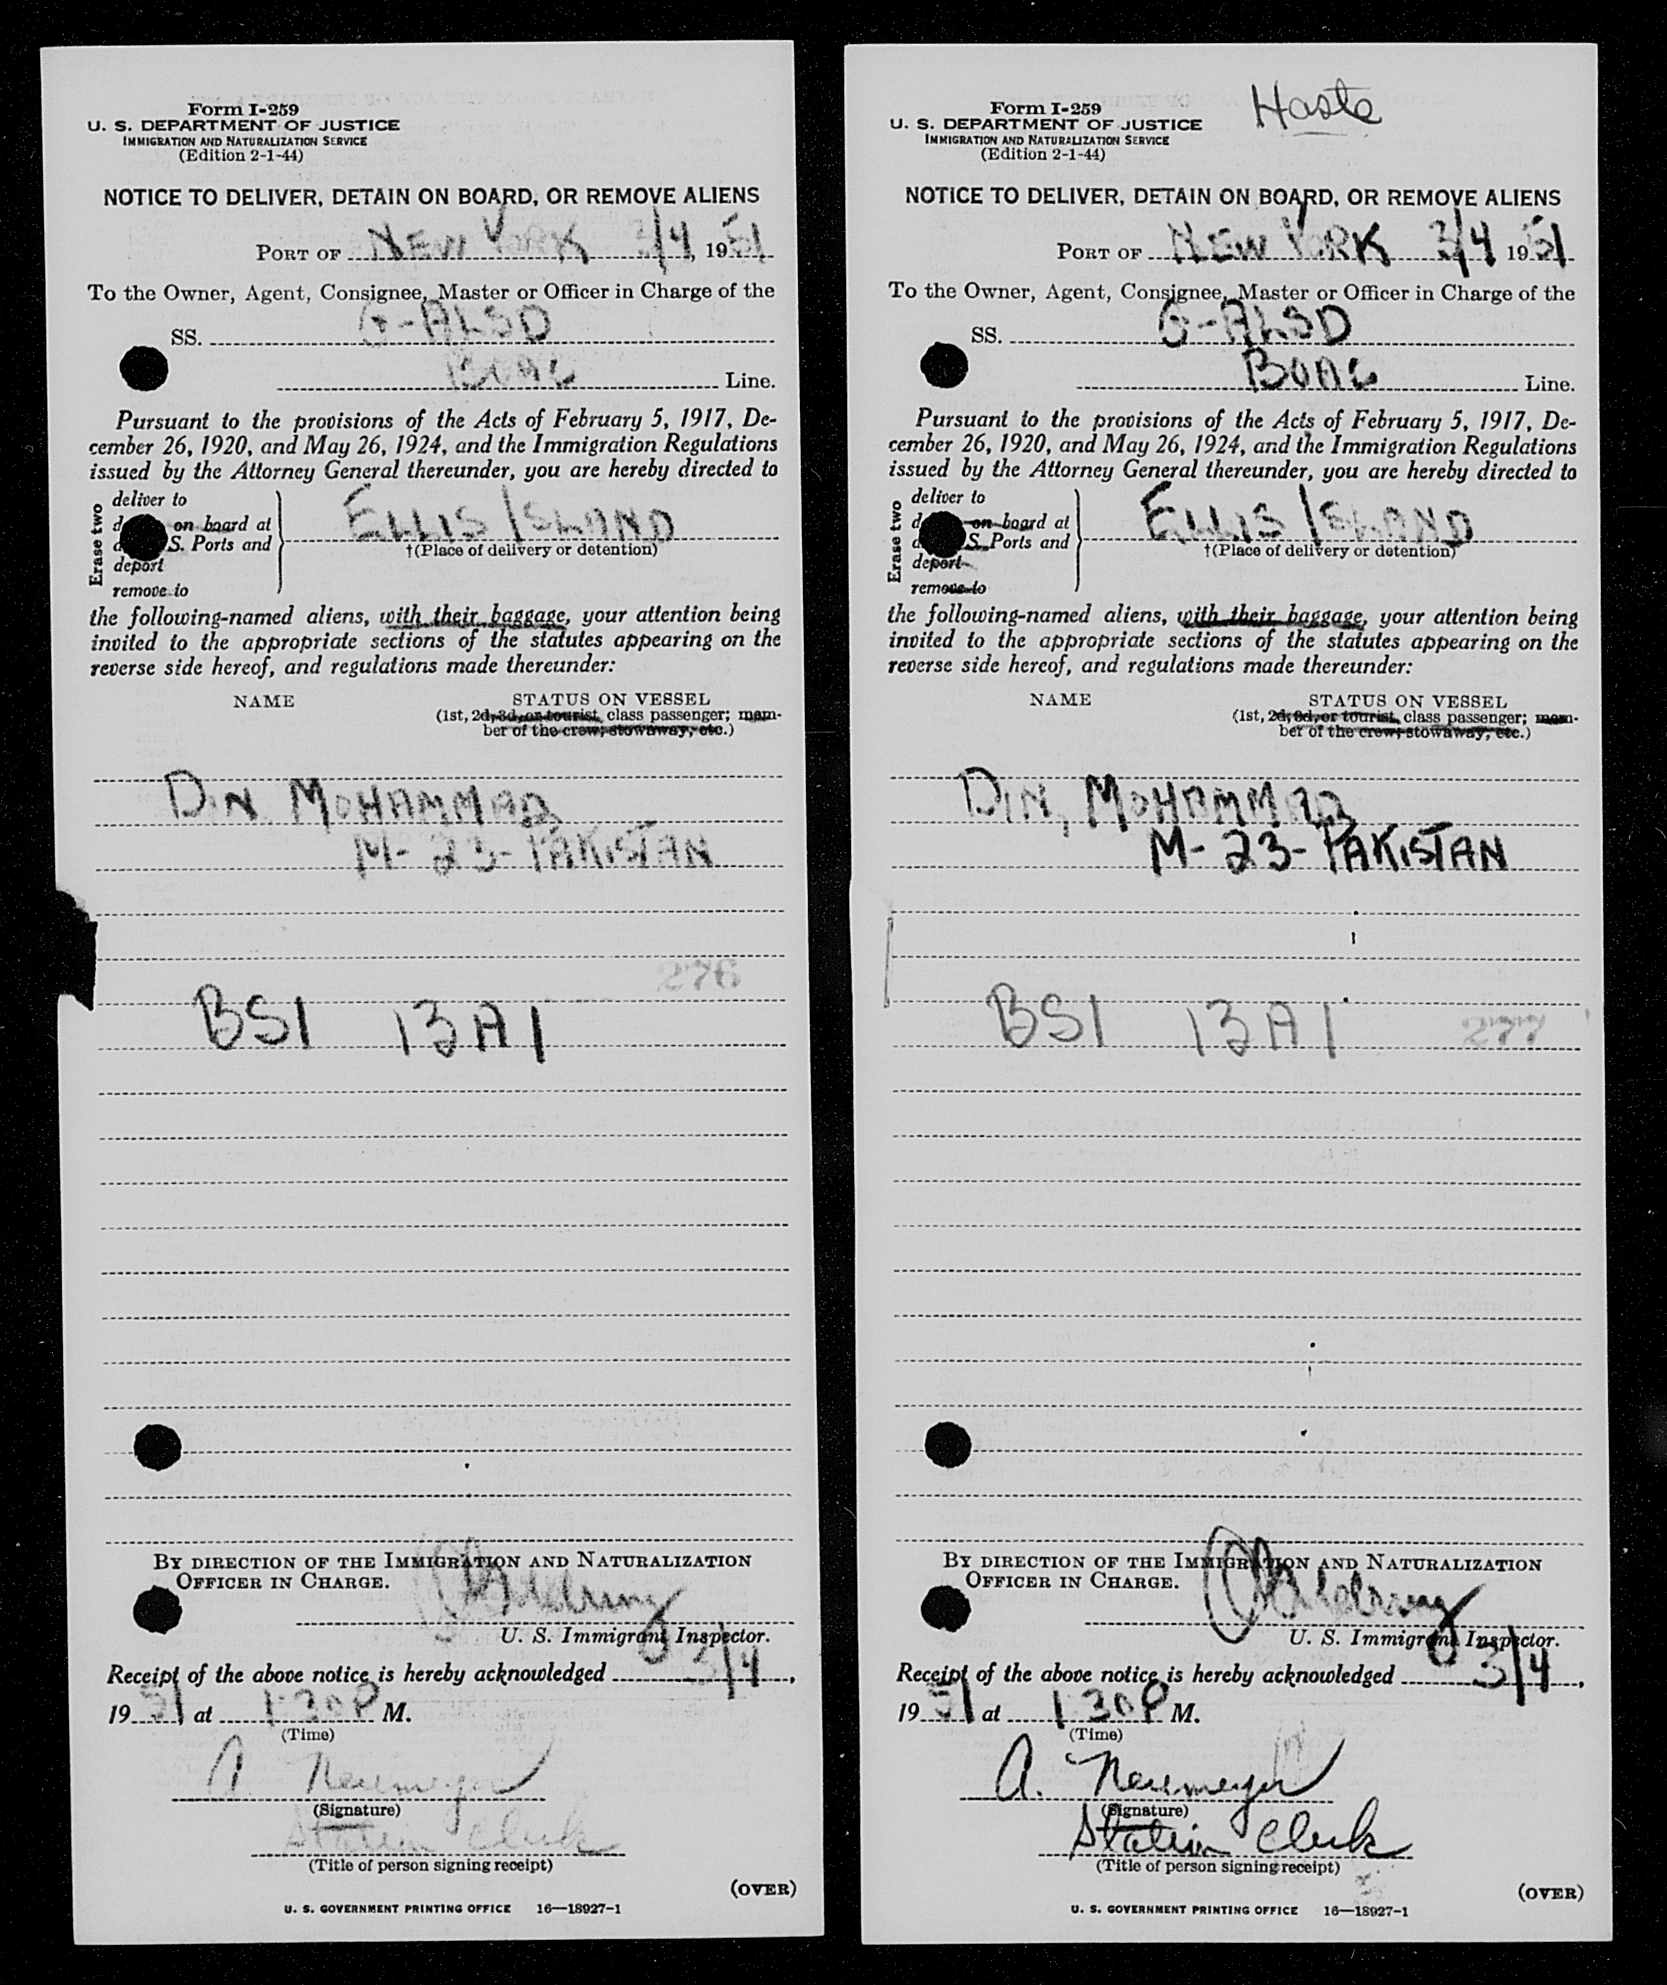 Form I-259
U. S. DEPARTMENT OF JUSTICE
IMMIGRATION AND NATURALIZATION SERVICE
(Edition 2-1-44)
NOTICE TO DELIVER, DETAIN ON BOARD, OR REMOVE ALIENS
PORT OF NEW YORK 3/4, 1951
To the Owner, Agent, Consignee, Master or Officer in Charge of the
SS. G-ALSD
BOAC Line.
Pursuant to the provisions of the Acts of February 5, 1917, De-
cember 26, 1920, and May 26, 1924, and the Immigration Regulations
issued by the Attorney General thereunder, you are hereby directed to
Erase two
deliver to
on board at
S. Ports and
deport
remove to
ELLIS ISLAND
†(Place of delivery or detention)
the following-named aliens, with their baggage, your attention being
invited to the appropriate sections of the statutes appearing on the
reverse side hereof, and regulations made thereunder:
NAME STATUS ON VESSEL
(1st, 2d, 3d, or tourist, class passenger; mem-
ber of the crew; stowaway, etc.)
DIN MOHAMMAD
M-23-PAKISTAN
276
BSI 13A1
BY DIRECTION OF THE IMMIGRATION AND NATURALIZATION
OFFICER IN CHARGE.
U. S. Immigrant Inspector.
Receipt of the above notice is hereby acknowledged 3/4,
1951 at 1:30 P M.
(Time)
A. Neumeyer
(Signature)
Station Clerk
(Title of person signing receipt)
(OVER)
U. S. GOVERNMENT PRINTING OFFICE 16—18927-1
Haste
Form I-259
U. S. DEPARTMENT OF JUSTICE
IMMIGRATION AND NATURALIZATION SERVICE
(Edition 2-1-44)
NOTICE TO DELIVER, DETAIN ON BOARD, OR REMOVE ALIENS
PORT OF NEW YORK 3/4 1951
To the Owner, Agent, Consignee, Master or Officer in Charge of the
SS. G-ALSD
BOAC Line.
Pursuant to the provisions of the Acts of February 5, 1917, De-
cember 26, 1920, and May 26, 1924, and the Immigration Regulations
issued by the Attorney General thereunder, you are hereby directed to
Erase two
deliver to
on board at
S. Ports and
deport
remove to
ELLIS ISLAND
†(Place of delivery or detention)
the following-named aliens, with their baggage, your attention being
invited to the appropriate sections of the statutes appearing on the
reverse side hereof, and regulations made thereunder:
NAME STATUS ON VESSEL
(1st, 2d, 3d, or tourist, class passenger; mem-
ber of the crew; stowaway, etc.)
DIN, MOHAMMAD
M-23-PAKISTAN
BSI 13A1 277
BY DIRECTION OF THE IMMIGRATION AND NATURALIZATION
OFFICER IN CHARGE.
U. S. Immigrant Inspector.
Receipt of the above notice is hereby acknowledged 3/4,
1951 at 1:30 P M.
(Time)
A. Neumeyer
(Signature)
Station Clerk
(Title of person signing receipt)
(OVER)
U. S. GOVERNMENT PRINTING OFFICE 16—18927-1